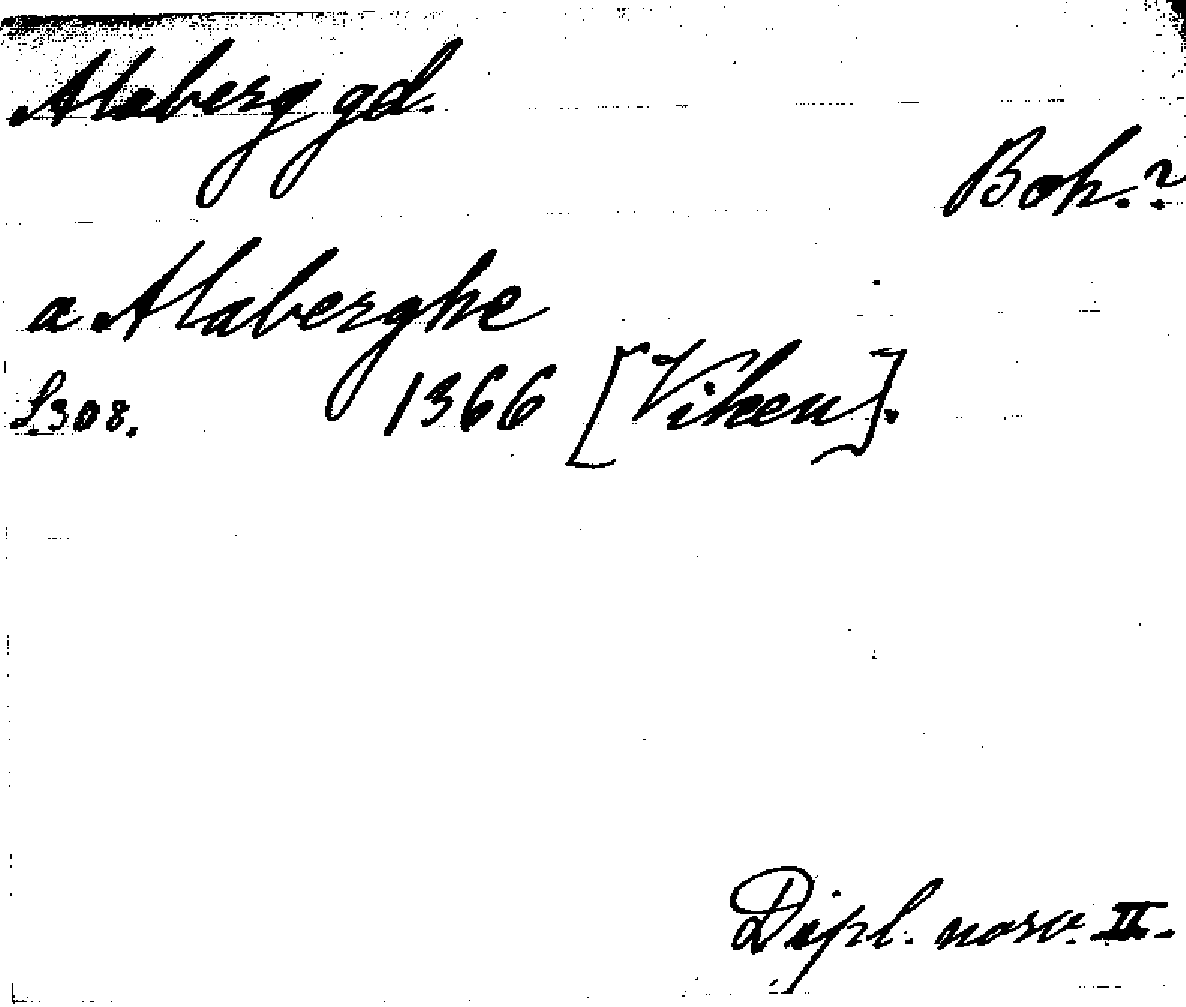 Alaberg gd.
Boh.?
a Alaberghe
S.308. 1366 [Viken].
Dipl. norv. II.